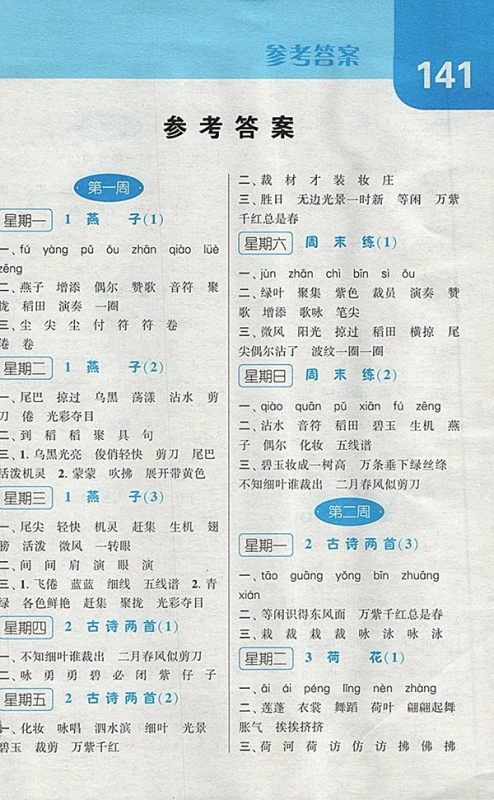 参考答案
141
参考答案
第一周
星期一 1 燕 子(1)
一、fú yàng pǔ ǒu zhān qiào lüè
zēng
二、燕子 增添 偶尔 赞歌 音符 聚
拢 稻田 演奏 一圈
三、尘 尖尘 付 符符 卷
倦 卷
星期二 1 燕 子(2)
一、尾巴 掠过 乌黑 荡漾 沾水 剪
刀 倦 光彩夺目
二、到 稻 稻 聚 具 句
三、1. 乌黑光亮 俊俏轻快 剪刀 尾巴
活泼机灵 2. 蒙蒙 吹拂 展开带黄色
星期三 1 燕 子(3)
一、尾尖 轻快 机灵 赶集 生机 翅
膀 活泼 微风 一转眼
二、间 间 肩 演 眼 演
三、1. 飞倦 蓝蓝 细线 五线谱 2. 青
绿 各色鲜艳 赶集 聚拢 光彩夺目
星期四 2 古诗两首(1)
一、不知细叶谁裁出 二月春风似剪刀
二、咏 勇 勇 碧 必 闭 紫 仔 子
星期五 2 古诗两首(2)
一、化妆 咏唱 泗水滨 细叶 光景
碧玉 裁剪 万紫千红
二、裁 材 才 装 妆 庄
三、胜日 无边光景一时新 等闲 万紫
千红总是春
星期六 周 末 练(1)
一、jùn zhān chì bīn sì ǒu
二、绿叶 聚集 紫色 裁员 演奏 赞
歌 增添 歌咏 笔尖
三、微风 阳光 掠过 稻田 横掠 尾
尖偶尔沾了 波纹一圈一圈
星期日 周 末 练(2)
一、qiào quān pǔ xiān fú zēng
二、沾水 音符 稻田 碧玉 生机 燕
子 偶尔 化妆 五线谱
三、碧玉妆成一树高 万条垂下绿丝绦
不知细叶谁裁出 二月春风似剪刀
第二周
星期一 2 古诗两首(3)
一、tāo guāng yǒng bīn zhuāng
xián
二、等闲识得东风面 万紫千红总是春
三、栽 裁 裁 裁 咏 泳 咏 泳
星期二 3 荷 花(1)
一、āi ái péng lǐng nèn zhàng
二、莲蓬 衣裳 舞蹈 荷叶 翩翩起舞
胀气 挨挨挤挤
三、荷 河 荷 访 仿 访 拂 佛 拂